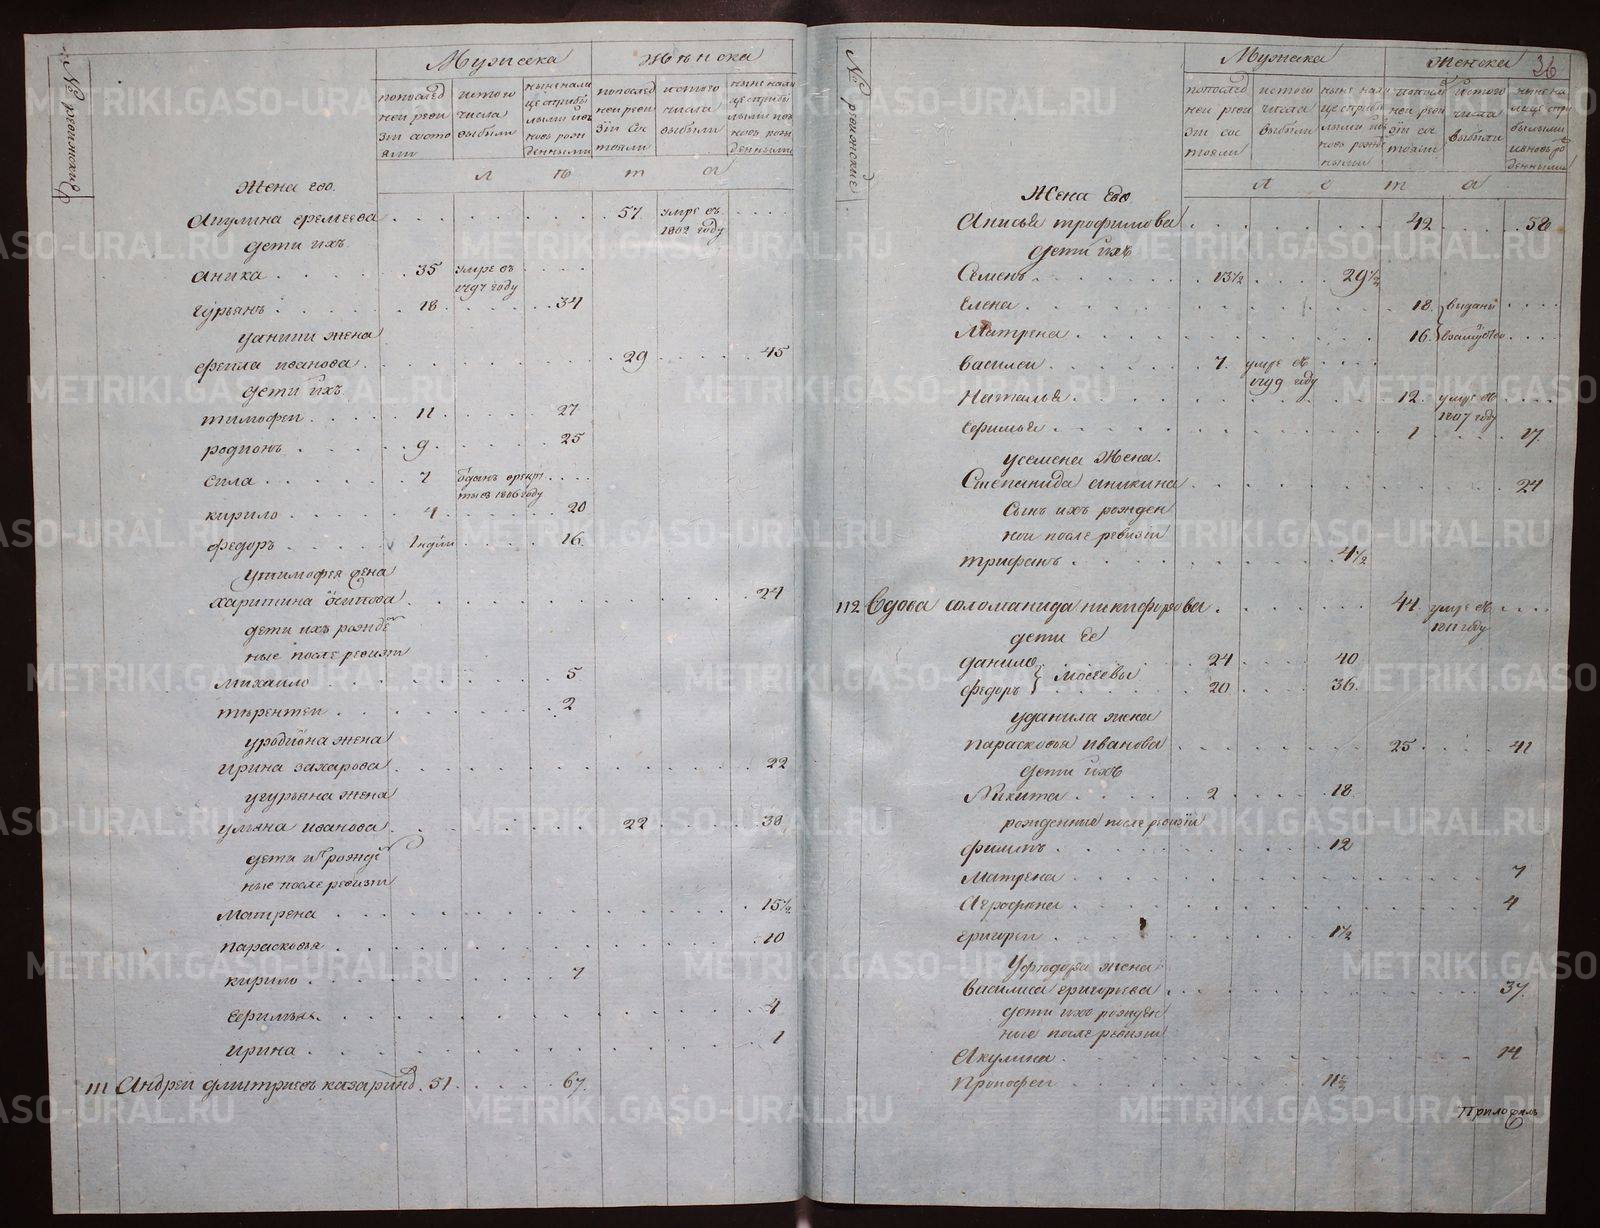 № ревижские
Мужска
Женска
попослед
ней реви
зїи состо
яли
истого
числа
выбыли
ныне нали
це сприбы
лыми ивъ
новь рож
денными
попослед
ней реви
зїи сос
тояли
истого
числа
выбыли
ныне нали
це сприбы
лыми ивъ
новь рож
денными
лѣта
Жена его
Акулина еремеева 57 умре въ
1802 году
дети ихъ
аника 35 умре въ
году
гурьянъ 18 34
уаники жена
фекла иванова 29 45
дети ихъ
тимофеи 11 27
родионъ 9 25
сила 7 году
кирило 4 20
федоръ 1 ндли 16
утимофея жена
харитина осипова 24
дети ихъ рожде
ные после ревизїи
михаило 5
терентеи 2
уродиона жена
ирина захарова 22
угурьяна жена
ульяна иванова 22 38
дети ихъ рожде
ные после ревизїи
матрена 15½
парасковья 10
кирило 7
ефимья 4
ирина 1
111 Андреи дмитриевъ казаринъ 51 67
№ ревижские
Мужска
Женска
36
попослед
ней реви
зїи сос
тояли
истого
числа
выбыли
ныне нали
це сприбы
лыми ивъ
новь рожде
ными
попосл
ней реви
зїи сос
тояли
истого
числа
выбыли
ныне на
лице спри
былыми
ивновь ро
денными
лета
Жена его
Анисья трофимова 42 58
дети ихъ
Семенъ 13½ 29½
Елена 18 выданы
Матрена 16 взамужство
василеи 7 умре въ
году
Наталья 12 умре въ
1807 году
ефимья 1 17
усемена жена
Степанида аникина 24
Сынъ ихъ рожден
нои после ревизїи
трифанъ 4½
112 Вдова соломанида никифорова 44 умре въ
1811 году
дети ее
данило 24 40
Мосеевы
федоръ 20 36
уданила жена
парасковья иванова 25 41
дети ихъ
Никита 2 18
рожденные после ревизїи
филипъ 12
Матрена 7
Аграфена 4
григореи 1½
Уфедора жена
василиса григорьева 37
дети ихъ рожден
ные после ревизїи
Акулина 14
Прокофеи 11½
METRIKI.GASO-URAL.RU